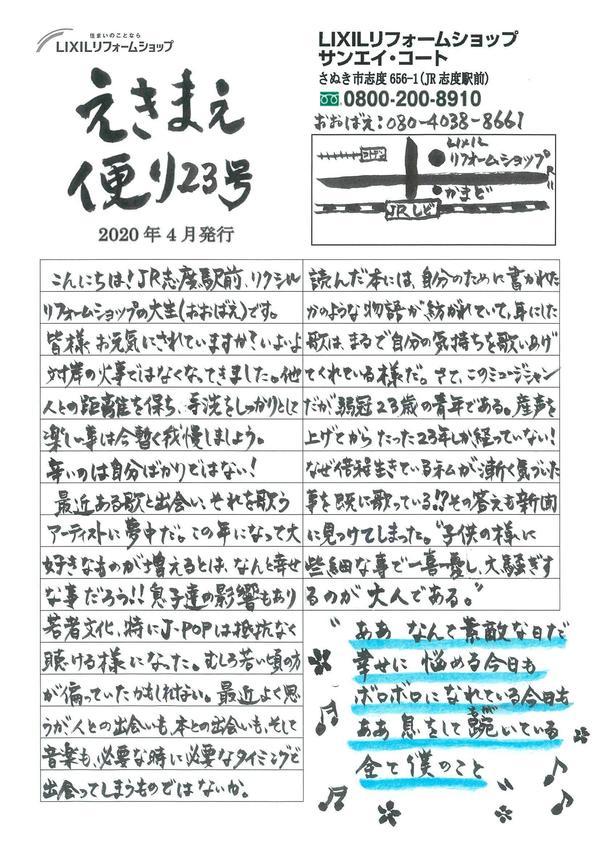 住まいのことなら
LIXILリフォームショップ
えきまえ
便り23号
2020年4月発行
LIXILリフォームショップ
サンエイ・コート
さぬき市志度656-1(JR志度駅前)
0800-200-8910
おおばえ:080-4038-8661
LIXIL
リフォームショップ
コトデン
R11
かまど
JRしど
こんにちは!JR志度駅前、リクシル
リフォームショップの大生(おおばえ)です。
皆様、お元気にされていますか?いよいよ
対岸の火事ではなくなってきました。他
人との距離を保ち、手洗をしっかりとして
楽しい事は今暫く我慢しましょう。
辛いのは自分ばかりではない!
最近ある歌と出会い、それを歌う
アーティストに夢中だ。この年になって大
好きなものが増えるとは、なんと幸せ
な事だろう!!息子達の影響もあり
若者文化、特にJ-POPは抵抗なく
聴ける様になった。むしろ若い頃の方
が偏っていたかもしれない。最近よく思
うが人との出会いも、本との出会いも、そして
音楽も、必要な時に必要なタイミングで
出会ってしまうものではないか。
読んだ本には、自分のために書かれた
かのような物語が紡がれていて、耳にした
歌は、まるで自分の気持ちを歌いあげ
てくれている様だ。さて、このミュージシャン
だが弱冠23歳の青年である。産声を
上げてからたった23年しか経っていない!
なぜ倍程生きている私が漸く気づいた
事を既に歌っている!?その答えも新聞
に見つけてしまった。"子供の様に
些細な事で一喜一憂し、大騒ぎす
るのが大人である。"
"ああ なんて素敵な日だ
幸せに 悩める今日も
ボロボロになれている今日も
ああ 息をして踠いている
もが
全て僕のこと"